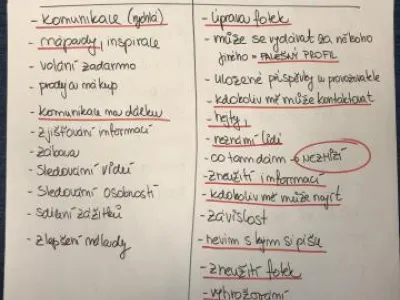 - komunikace (rychlá)
- nápady, inspirace
- volání zadarmo
- prodej a nákup
- komunikace na dálku
- zjišťování informací
- zábava
- sledování videí
- sledování osobností
- sdílení zážitků
- zlepšení nálady
- úprava fotek
- může se vydávat za někoho
jiného = FALEŠNÝ PROFIL
- uložené příspěvky u provozovatele
- kdokoliv mě může kontaktovat
- hejty,
- neznámí lidi
- co tam dám → NEZMIZÍ
- zneužití informací
- kdokoliv mě může najít
- závislost
- nevím s kým si píšu
- zneužití fotek
- vyhrožování